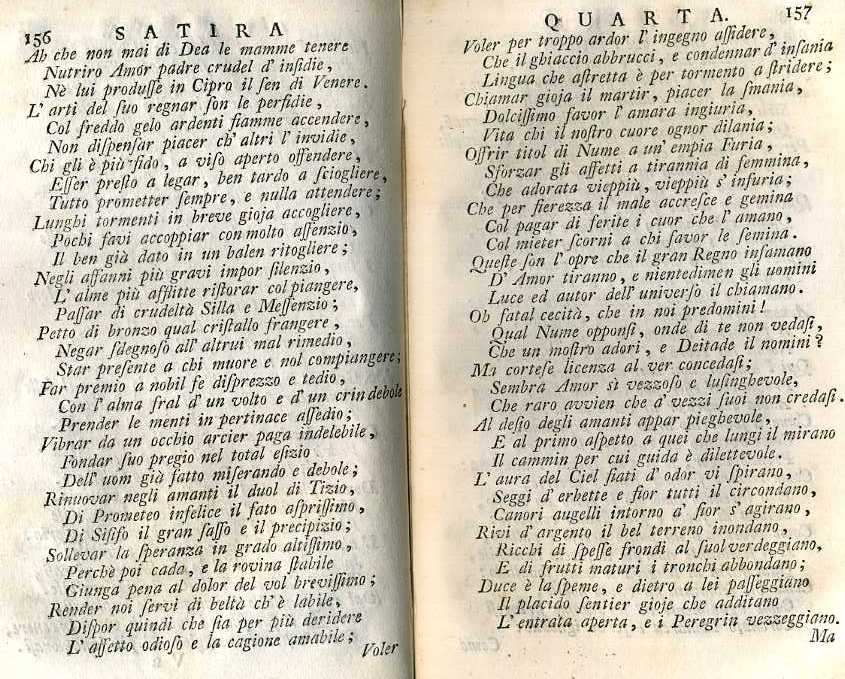 156 SATIRA
Ah che non mai di Dea le mamme tenere
Nutriro Amor padre crudel d' inſidie,
Nè lui produſſe in Cipro il ſen di Venere.
L' arti del ſuo regnar ſon le perfidie,
Col freddo gelo ardenti fiamme accendere,
Non diſpenſar piacer ch' altri l' invidie,
Chi gli è più fido, a viſo aperto offendere,
Eſſer preſto a legar, ben tardo a ſciogliere,
Tutto prometter ſempre, e nulla attendere;
Lunghi tormenti in breve gioja accogliere,
Pochi favi accoppiar con molto aſſenzio,
Il ben già dato in un balen ritogliere;
Negli affanni più gravi impor ſilenzio,
L' alme più afflitte riſtorar col piangere,
Paſſar di crudeltà Silla e Meſſenzio;
Petto di bronzo qual criſtallo frangere,
Negar ſdegnoſo all' altrui mal rimedio,
Star preſente a chi muore e nol compiangere;
Far premio a nobil fe diſprezzo e tedio,
Con l' alma fral d' un volto e d' un crin debole
Prender le menti in pertinace aſſedio;
Vibrar da un occhio arcier paga indelebile,
Fondar ſuo pregio nel total eſizio
Dell' uom già fatto miſerando e debole;
Rinuovar negli amanti il duol di Tizio,
Di Prometeo infelice il fato aſpriſſimo,
Di Siſifo il gran ſaſſo e il precipizio;
Sollevar la ſperanza in grado altiſſimo,
Perchè poi cada, e la rovina ſtabile
Giunga pena al dolor del vol breviſſimo;
Render noi ſervi di beltà ch' è labile,
Diſpor quindi che ſia per più deridere
L' aſſetto odioſo e la cagione amabile;
Voler
QUARTA. 157
Voler per troppo ardor l' ingegno aſſidere,
Che il ghiaccio abbrucci, e condennar d' inſania
Lingua che aſtretta è per tormento a ſtridere;
Chiamar gioja il martir, piacer la ſmania,
Dolciſſimo favor l' amara ingiuria,
Vita chi il noſtro cuore ognor dilania;
Offrir titol di Nume a un' empia Furia,
Sforzar gli affetti a tirannia di femmina,
Che adorata vieppiù, vieppiù s' infuria;
Che per fierezza il male accreſce e gemina
Col pagar di ferite i cuor che l' amano,
Col mieter ſcorni a chi favor le ſemina.
Queſte ſon l' opre che il gran Regno infamano
D' Amor tiranno, e nientedimen gli uomini
Luce ed autor dell' univerſo il chiamano.
Oh fatal cecità, che in noi predomini!
Qual Nume opponſi, onde di te non vedaſi,
Che un moſtro adori, e Deitade il nomini?
Ma corteſe licenza al ver concedaſi;
Sembra Amor sì vezzoſo e luſinghevole,
Che raro avvien che a' vezzi ſuoi non credaſi.
Al deſio degli amanti appar pieghevole,
E al primo aſpetto a quei che lungi il mirano
Il cammin per cui guida è dilettevole.
L' aura del Ciel fiati d' odor vi ſpirano,
Seggi d' erbette e fior tutti il circondano,
Canori augelli intorno a' fior s' agirano,
Rivi d' argento il bel terreno inondano,
Ricchi di ſpeſſe frondi al ſuol verdeggiano,
E di frutti maturi i tronchi abbondano;
Duce è la ſpeme, e dietro a lei paſſeggiano
Il placido ſentier gioje che additano
L' entrata aperta, e i Peregrin vezzeggiano.
Ma